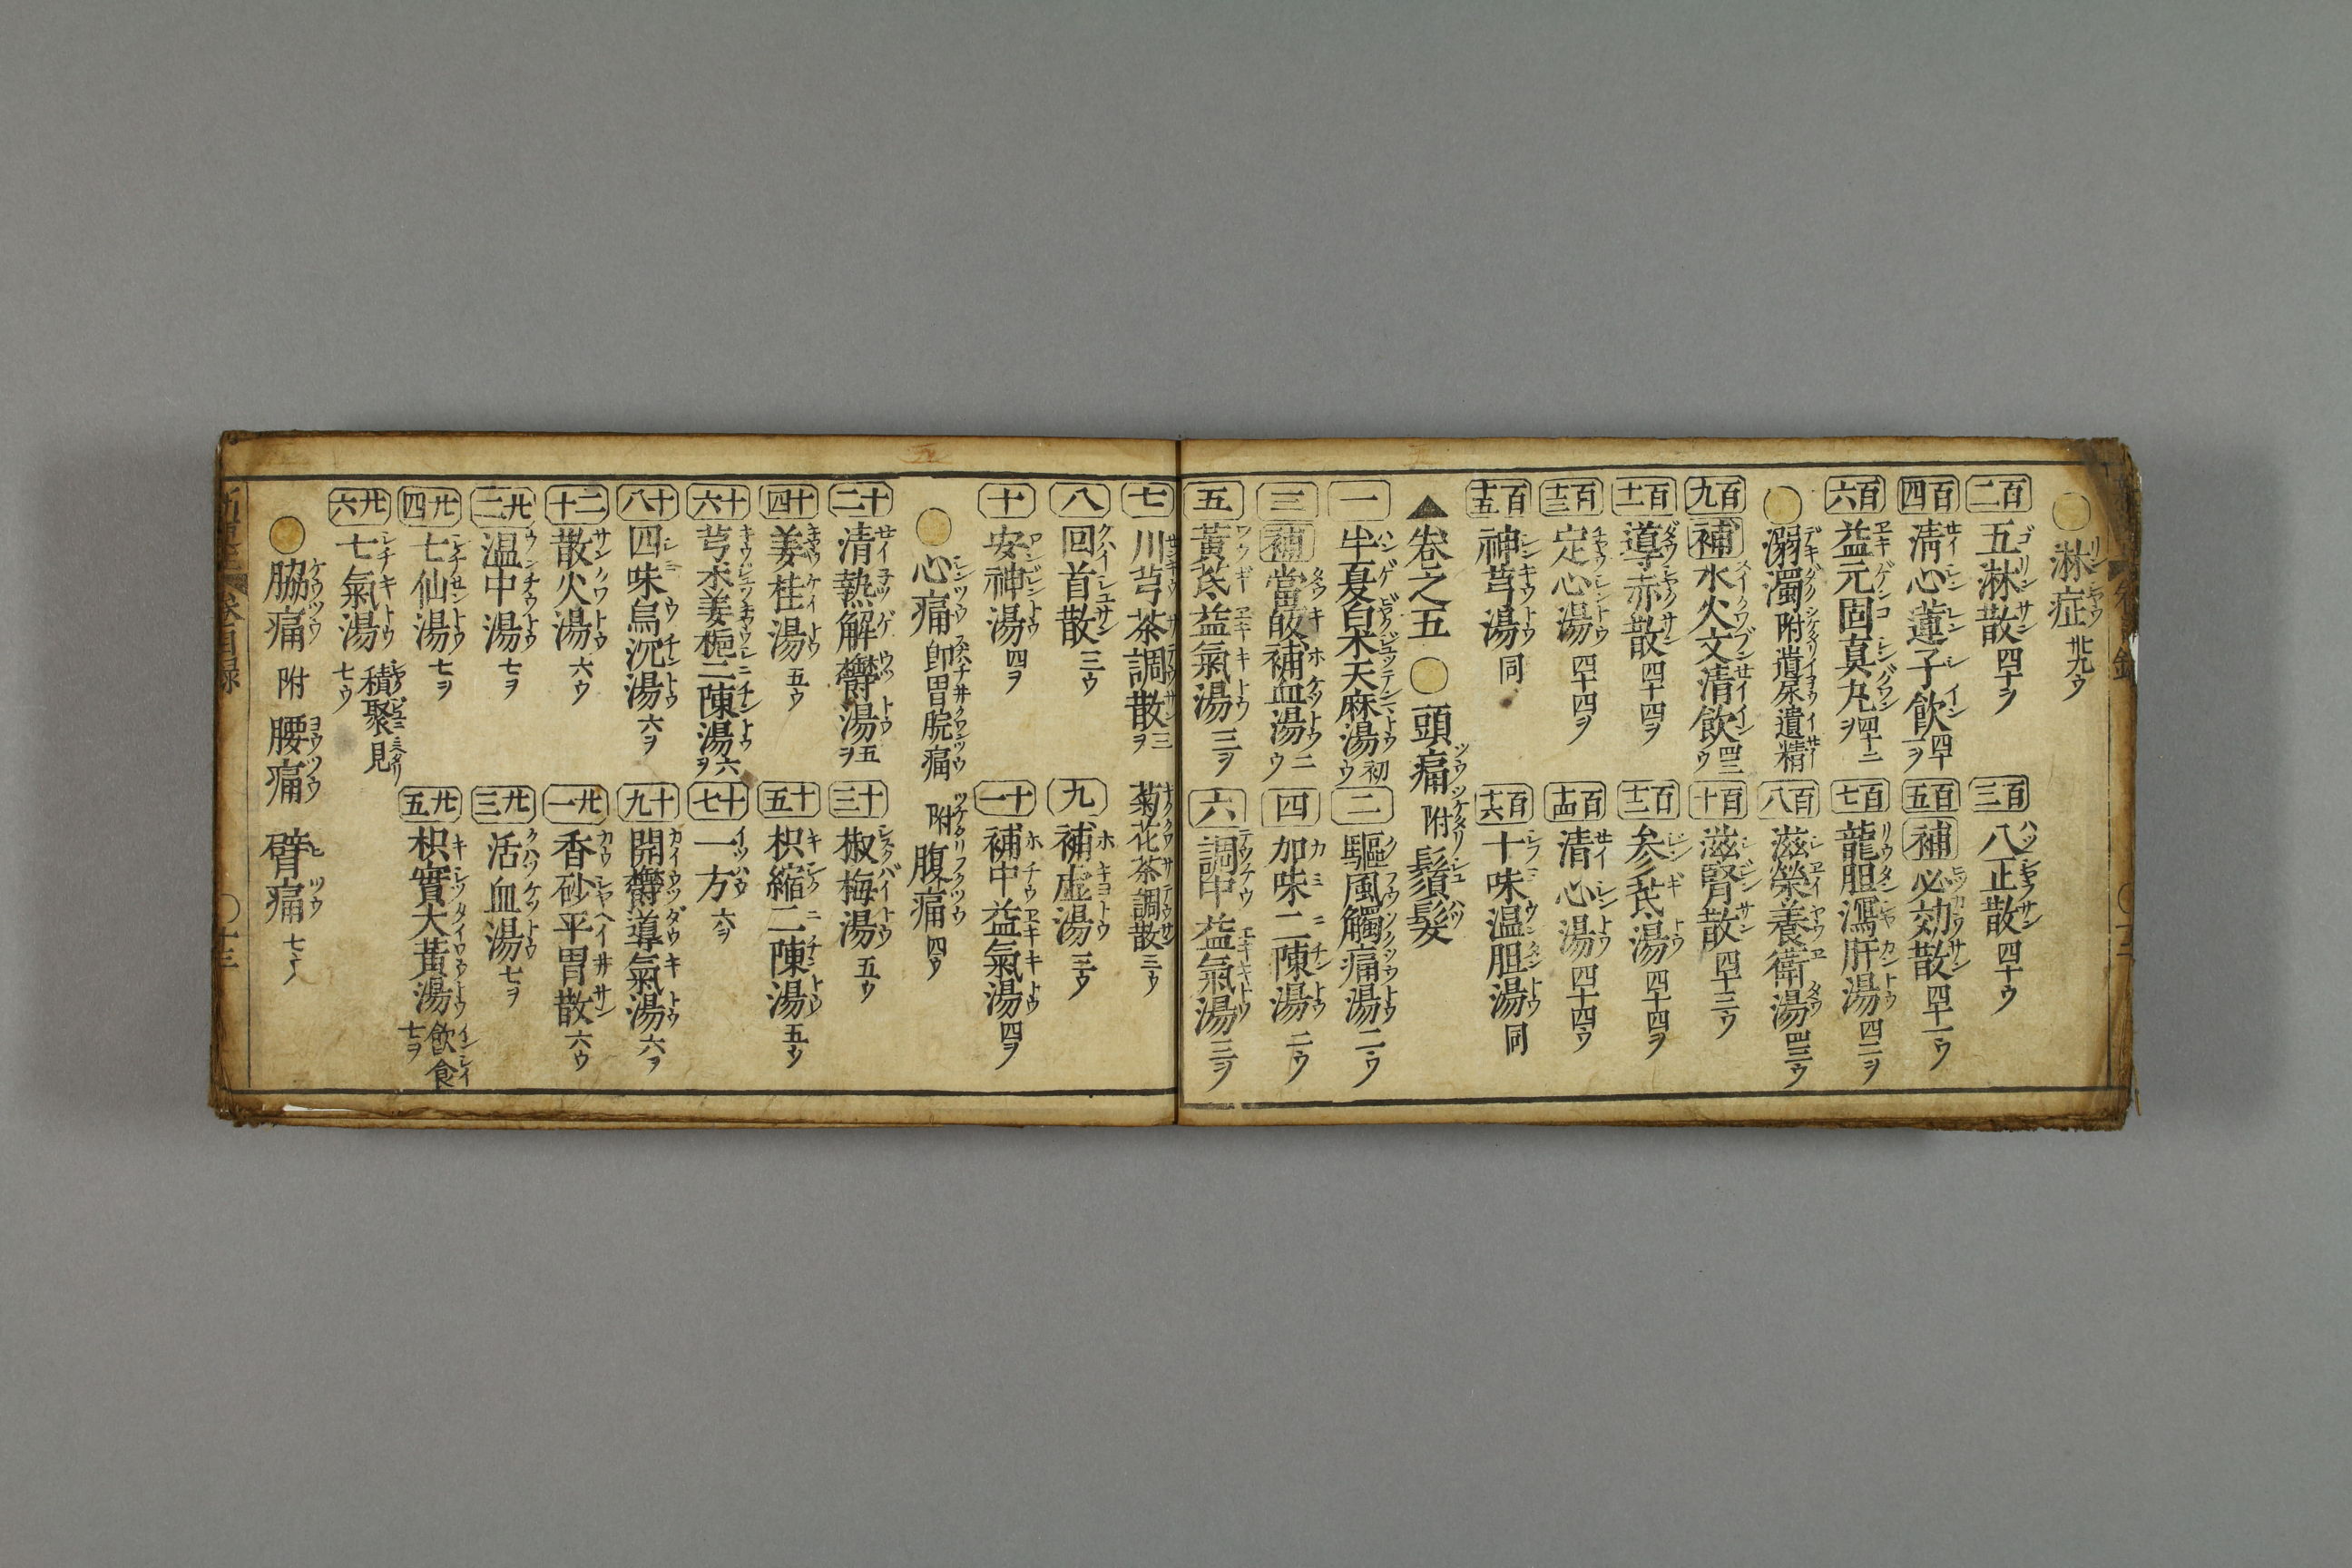 淋症 卅九ウ
百二 五淋散 四十ヲ 百三 八正散 四十ウ
百四 清心蓮子飲 四十一ヲ 百五 補 必効散 四十一ウ
百六 益元固真丸 四十二ヲ 百七 龍胆瀉肝湯 四二ヲ
溺濁 附遺尿遺精 百八 滋榮養衛湯 四三ウ
百九 補 水火文清飲 四三ウ 百十 滋腎散 四十三ウ
百十一 導赤散 四十四ヲ 百十二 参芪湯 四十四ヲ
百十三 定心湯 四十四ヲ 百十四 清心湯 四十四ウ
百十五 神芎湯 同 百十六 十味温胆湯 同
▲卷之五 頭痛 附 鬚髮
一 半夏白朮天麻湯 初ウ 二 驅風觸痛湯 二ウ
三 補 當皈補血湯 二ウ 四 加味二陳湯 二ウ
五 黃芪益氣湯 三ヲ 六 調中益氣湯 三ヲ
七 川芎茶調散 三ヲ 菊花茶調散 三ウ
八 回首散 三ウ 九 補虚湯 三ウ
十 安神湯 四ヲ 十一 補中益氣湯 四ヲ
心痛 卽胃脘痛 附 腹痛 四ウ
十二 清熱解欝湯 五ヲ 十三 椒梅湯 五ウ
十四 姜桂湯 五ウ 十五 枳縮二陳湯 五ウ
十六 芎朮姜梔二陳湯 六ヲ 十七 一方 六ヲ
十八 四味烏沉湯 六ヲ 十九 開欝導氣湯 六ヲ
二十 散火湯 六ウ 廿一 香砂平胃散 六ウ
廿二 温中湯 七ヲ 廿三 活血湯 七ヲ
廿四 七仙湯 七ヲ 廿五 枳實大黃湯 飲食 七ヲ
廿六 七氣湯 積聚見 七ウ
脇痛 附 腰痛 臂痛